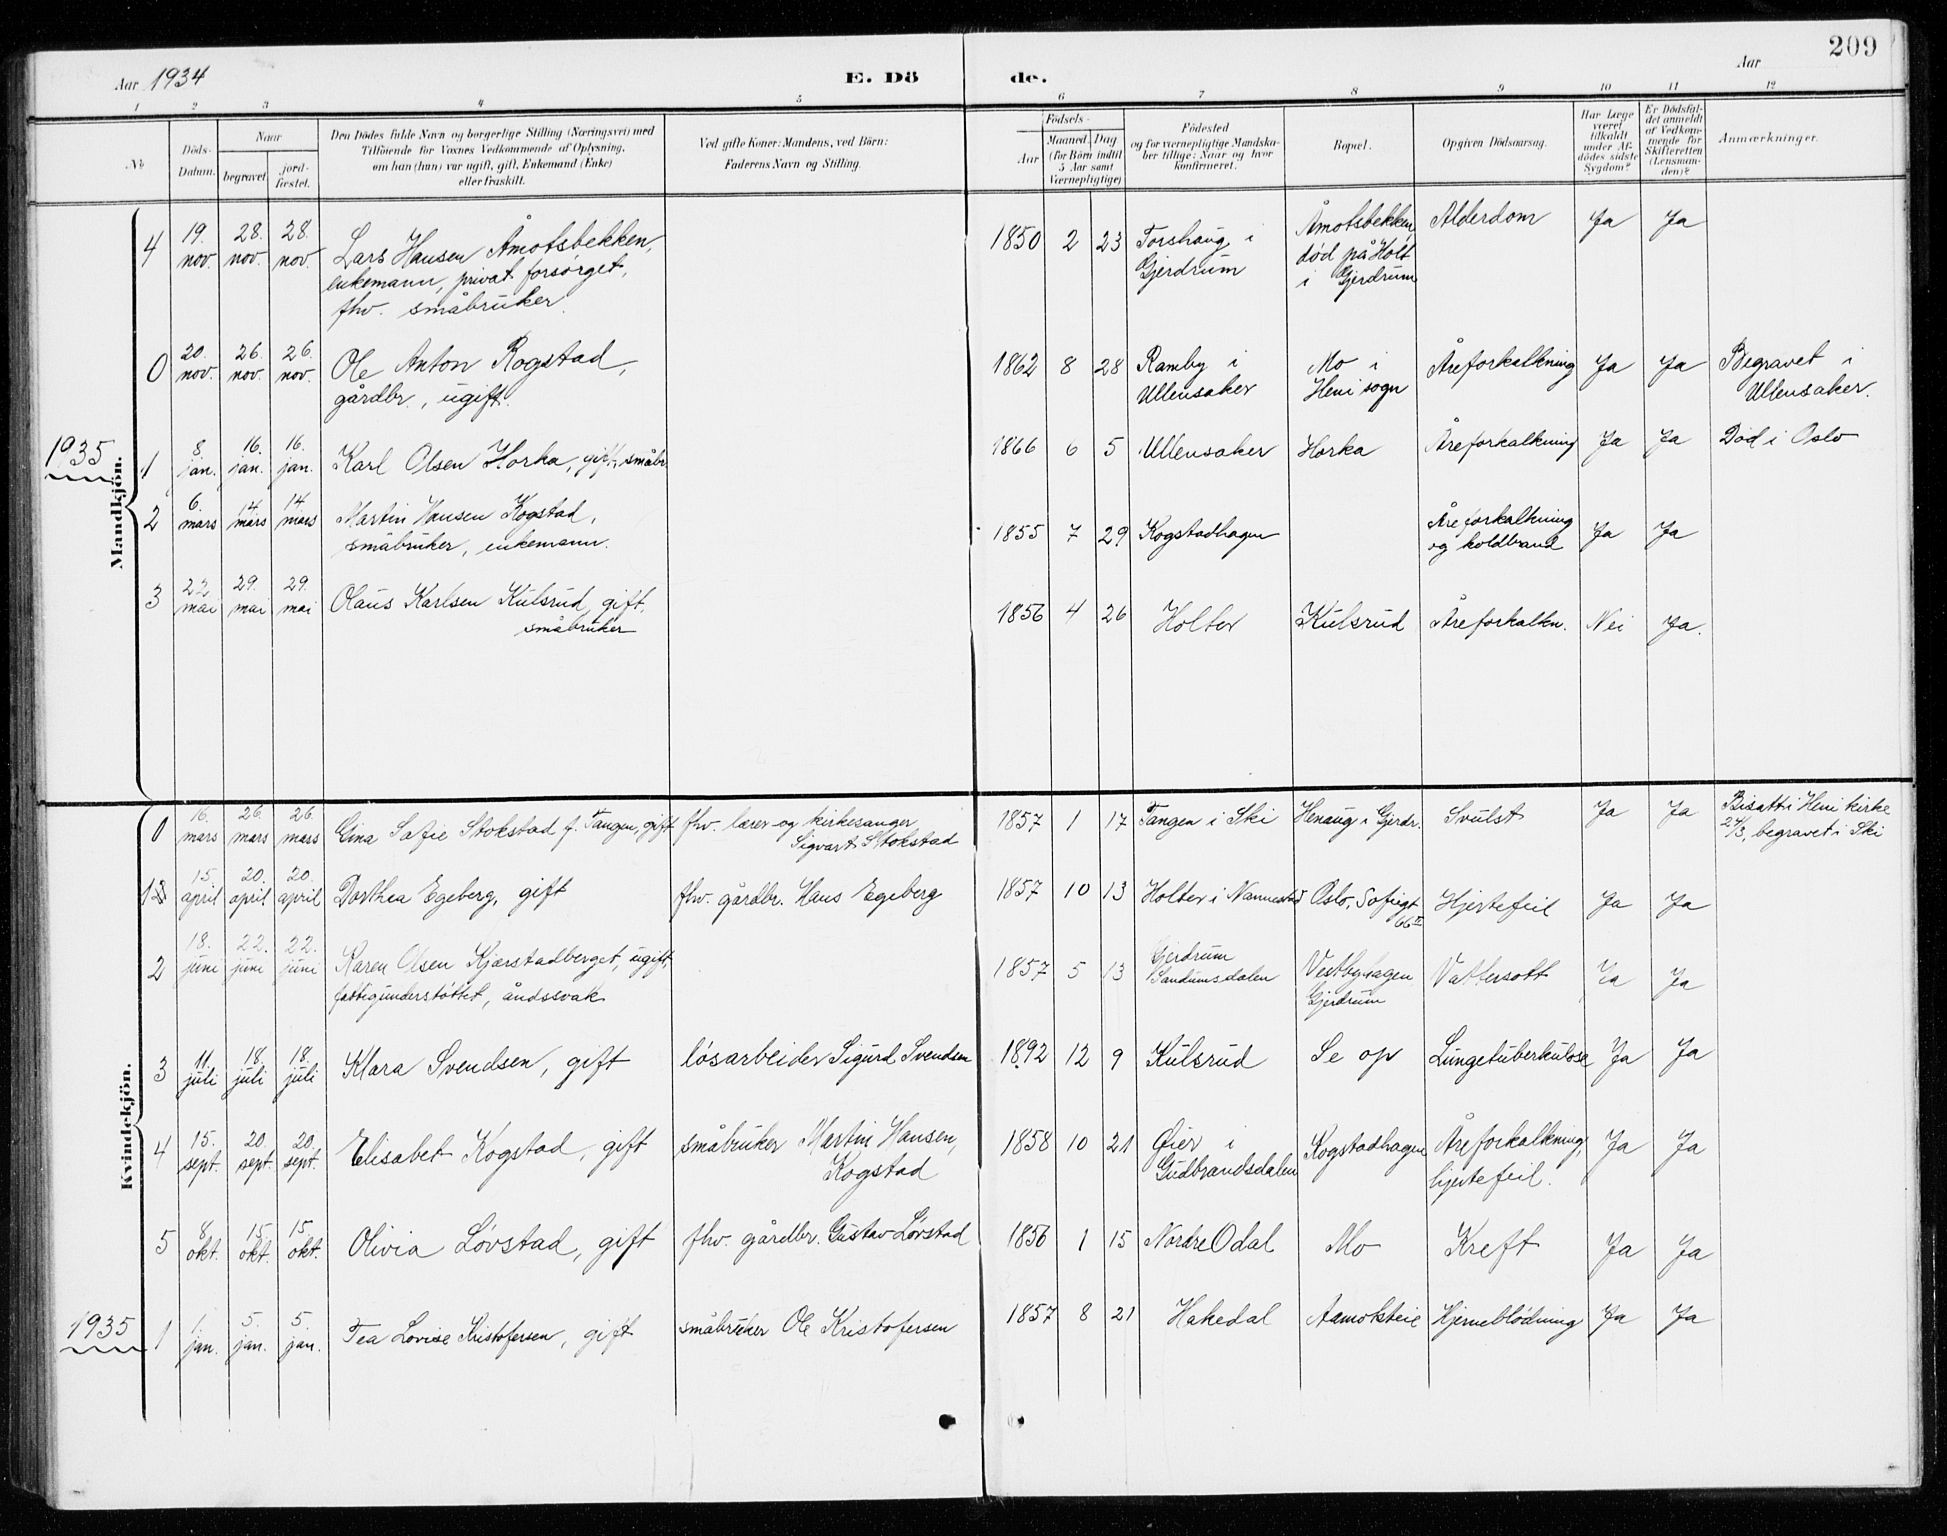 209
Aar 1934 E. Döde. Aar
1 2 3 4 5 6 7 8 9 10 11 12
№
Döds-Datum.
Naar
begravet.
jordfæstet.
Den Dödes fulde Navn og borgerlige Stilling (Næringsvei) med
Tilföiende for Voxnes Vedkommende af Oplysning,
om han (hun) var ugift, gift, Enkemand (Enke)
eller fraskilt.
Ved gifte Koner: Mandens, ved Börn:
Faderens Navn og Stilling.
Födsels-
Aar
Maaned. Dag
(for Börn indtil
5 Aar samt
Værnepligtige)
Födested
og for værnepligtige Mandskaber tillige: Naar og hvor
konfirmeret.
Bopæl.
Opgiven Dödsaarsag.
Har Læge
været
tilkaldt
under Afdödes sidste
Sygdom?
Er Dödsfaldet anmeldt
af Vedkommende for
Skifteretten
(Lensmanden)?
Anmærkninger.
Mandkjön.
4 19. nov. 28. nov. 28. nov. Lars Hansen Åmotsbekken, 1850 2 23 Torshaug i Gjerdrum Åmotsbekken, død på Holt i Gjerdrum Alderdom Ja Ja
enkemann, privat forsørget,
fhv. småbruker.
0 20. nov. 26. nov. 26. nov. Ole Anton Rogstad, 1862 8 28 Ramby i Ullensaker Mo i Heni sogn Åreforkalkning Ja Ja Begravet i Ullensaker.
gårdbr., ugift.
1935
1 8. jan. 16. jan. 16. jan. Karl Olsen Horka, gift, småbr. 1866 6 5 Ullensaker Horka Åreforkalkning Ja Ja Død i Oslo
2 6. mars 14. mars 14. mars Martin Hansen Kogstad, 1855 7 29 Kogstadhagen Åreforkalkning og koldbrand Ja Ja
småbruker, enkemann.
3 22. mai 29. mai 29. mai Olaus Karlsen Kulsrud, gift, 1856 4 26 Holter Kulsrud Åreforkalkn. Nei Ja.
småbruker
Kvindekjön.
0 16. mars 26. mars 26. mars Gina Sofie Stokstad f. Tangen, gift fhv. lærer og kirkesanger Sigvart Stokstad 1857 1 17 Tangen i Ski Henaug i Gjerdr. Svulst Ja Ja Bisatt i Heni kirke 24/3, begravet i Ski
1 15. april 20. april 20. april Dorthea Egeberg, gift fhv. gårdbr. Hans Egeberg 1857 10 13 Holter i Nannestad Oslo, Sofiegt 66 II Hjertefeil Ja Ja
2 18. juni 22. juni 22. juni Karen Olsen Kjærstadberget, ugift, 1857 5 13 Gjerdrum Sandumsdalen Vestbyhagen Gjerdrum Vattersott Ja Ja
fattigunderstøttet, åndssvak
3 11. juli 18. juli 18. juli Klara Svendsen, gift løsarbeider Sigurd Svendsen 1892 12 9 Kulsrud Se op Lungetuberkulose Ja Ja
4 15. sept. 20. sept. 20. sept. Elisabet Kogstad, gift småbruker Martin Hansen, Kogstad 1858 10 21 Øier i Gudbrandsdalen Kogstadhagen Åreforkalkning, hjertefeil. Ja Ja
5 8. okt. 15. okt. 15. okt. Olivia Løvstad, gift fhv. gårdbr. Gustav Løvstad 1856 1 15 Nordre Odal Mo Kreft Ja Ja
1935
1 1. jan. 5. jan. 5. jan. Tea Lovise Kristofersen, gift småbruker Ole Kristofersen 1857 8 21 Hakedal Aamotsteie Hjerneblødning Ja Ja